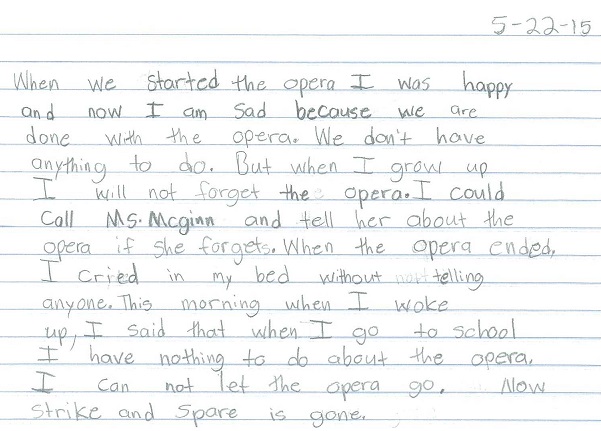 5-22-15
When we started the opera I was happy
and now I am sad because we are
done with the opera. We don't have
anything to do. But when I grow up
I will not forget the opera. I could
Call MS. Mcginn and tell her about the
opera if she forgets. When the opera ended,
I cried in my bed without telling
anyone. This morning when I woke
up, I said that when I go to school
I have nothing to do about the opera.
I can not let the opera go. Now
Strike and Spare is gone.